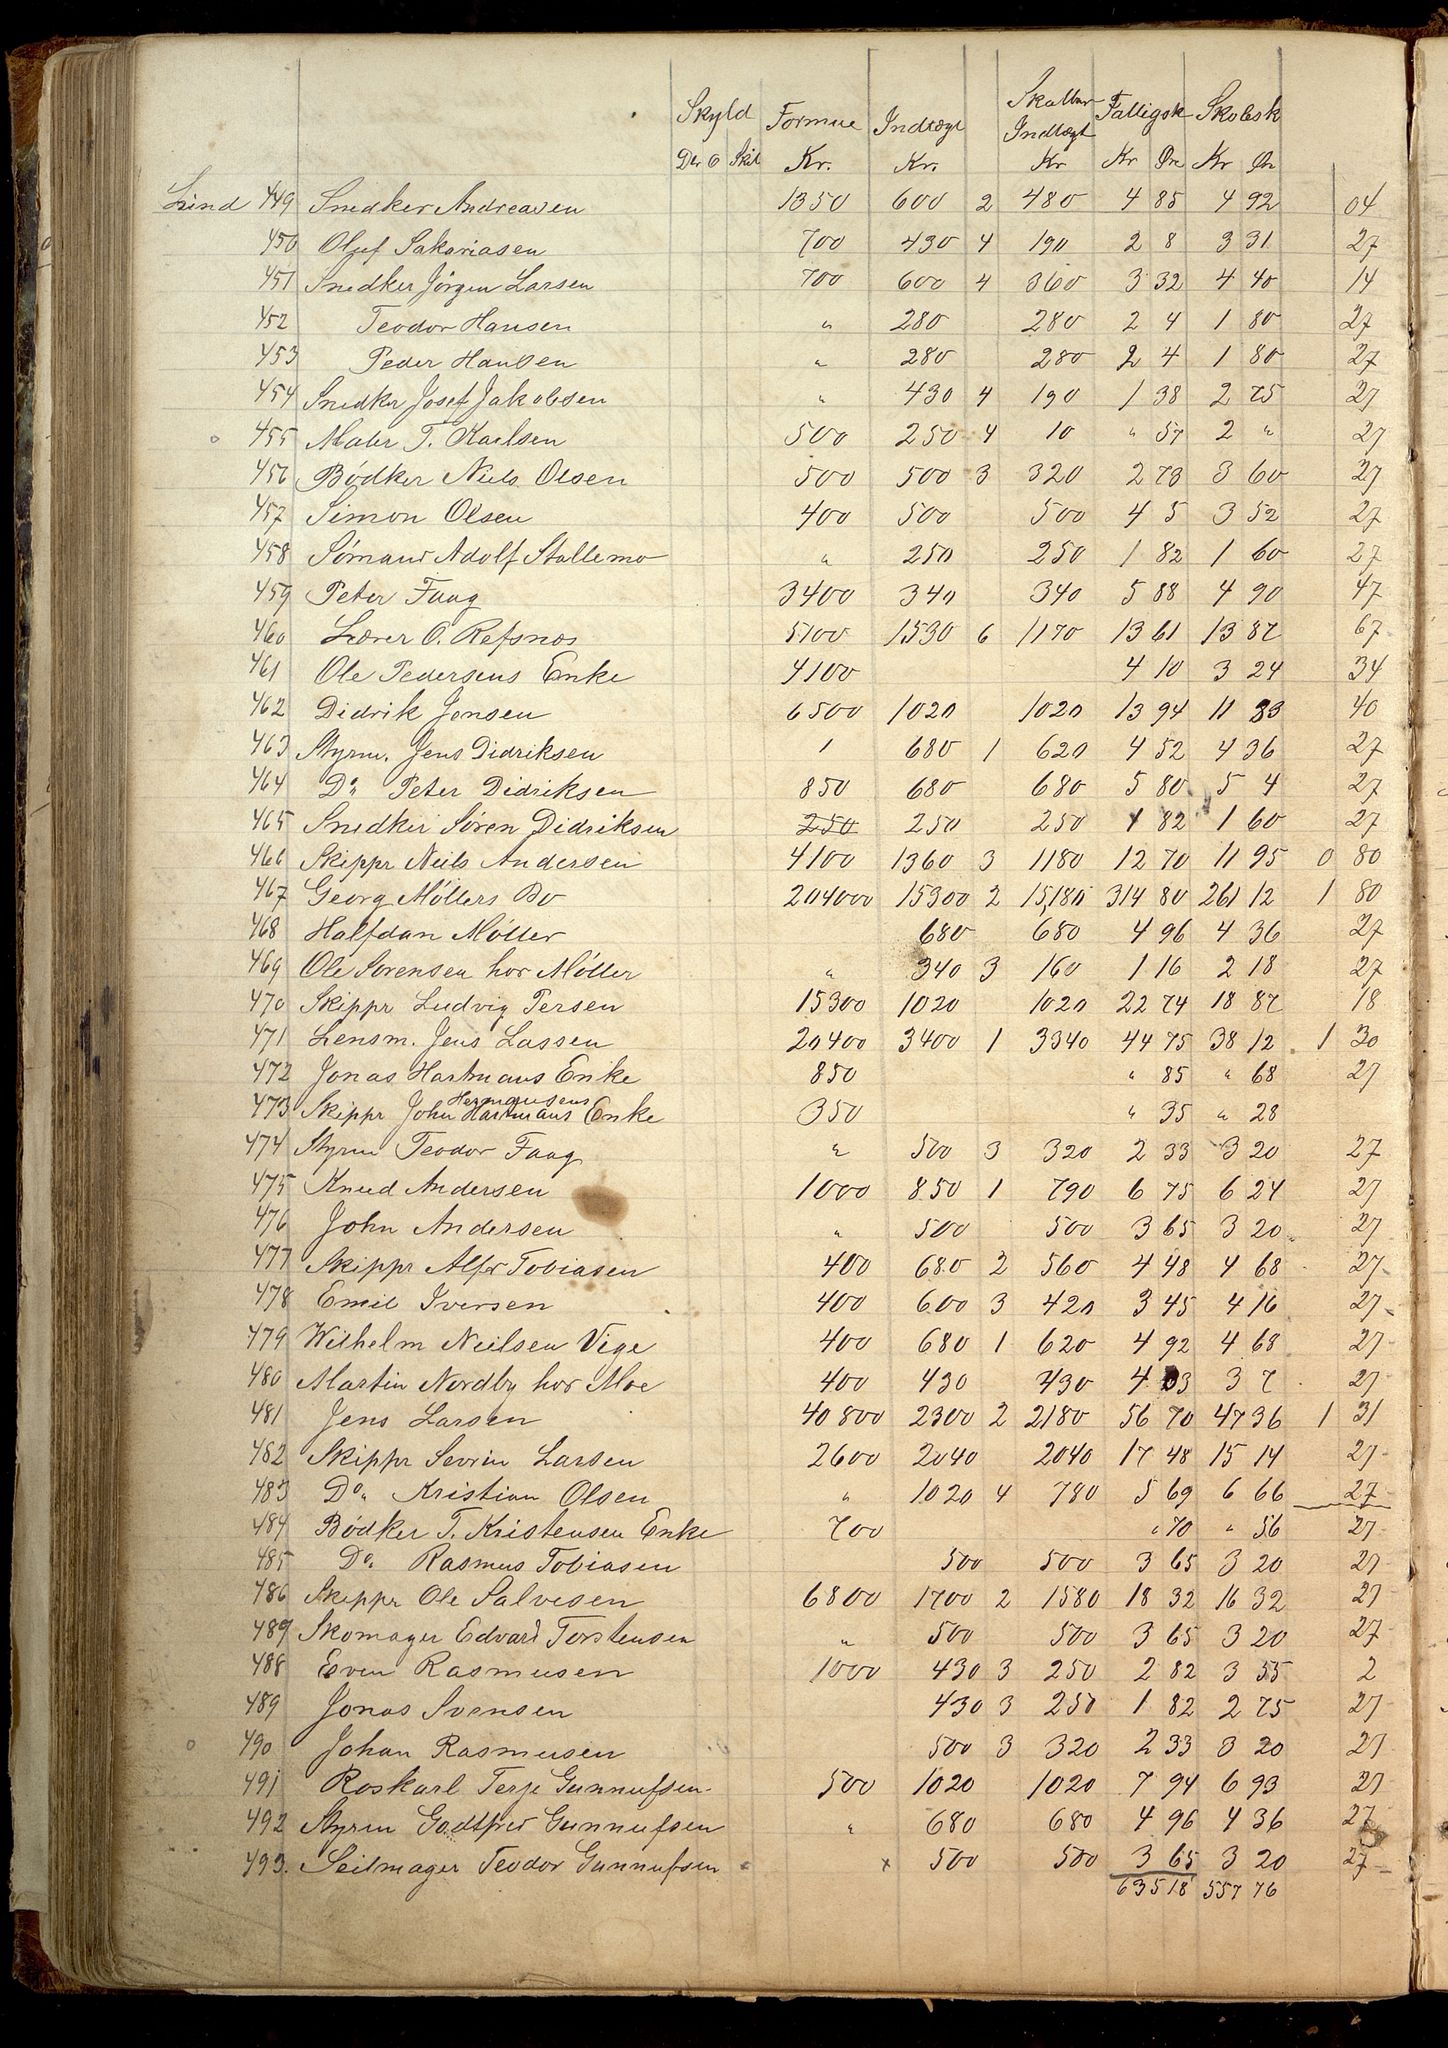 Skyld Formue Indtægt Skatbar Indtægt Fattigsk Skolesk
Dlr O Skil Kr. Kr. Kr Kr Øre Kr Øre
Lund 449 Snedker Andreasen 1350 600 2 480 4 85 4 92 04
450 Oluf Sakariasen 700 430 4 190 2 8 3 31 27
451 Snedker Jörgen Larsen 700 600 4 360 3 32 4 40 14
452 Teodor Hansen " 280 280 2 4 1 80 27
453 Peder Hansen " 280 280 2 4 1 80 27
454 Snedkr Josef Jakobsen " 430 4 190 1 38 2 75 27
455 Maler T. Karlsen 500 250 4 10 " 57 2 " 27
456 Bödker Niels Olsen 500 500 3 320 2 73 3 60 27
457 Simon Olsen 400 500 500 4 5 3 52 27
458 Sömand Adolf Stallemo " 250 250 1 82 1 60 27
459 Peter Faag 3400 340 340 5 88 4 90 47
460 Lærer O. Refsnes 5100 1530 6 1170 13 61 13 87 67
461 Ole Pedersens Enke 4100 4 10 3 24 34
462 Didrik Jensen 6500 1020 1020 13 94 11 83 40
463 Styrm. Jens Didriksen 1 680 1 620 4 52 4 36 27
464 Do. Peter Didriksen 850 680 680 5 80 5 4 27
465 Snedker Sören Didriksen 250 250 250 1 82 1 60 27
466 Skippr Neils Andersen 4100 1360 3 1180 12 70 11 95 0 80
467 Georg Möllers Bo 204000 15300 2 15,180 314 80 261 12 1 80
468 Halfdan Möller 680 680 4 96 4 36 27
469 Ole Sorensen hos Möller " 340 3 160 1 16 2 18 27
470 Skippr Ludvig Persen 15300 1020 1020 22 74 18 87 18
471 Lensm. Jens Lassen 20400 3400 1 3340 44 75 38 12 1 30
472 Jonas Hartmans Enke 850 " 85 " 68 27
Hermansens
473 Skippr John Hartmans Enke 350 " 35 " 28
474 Styrm Teodor Faag " 500 3 320 2 33 3 20 27
475 Knud Andersen 1000 850 1 790 6 75 6 24 27
476 John Andersen " 500 500 3 65 3 20 27
477 Skippr Alfr Tobiasen 400 680 2 560 4 48 4 68 27
478 Emil Iversen 400 600 3 420 3 45 4 16 27
479 Wilhelm Neilsen Vige 400 680 1 620 4 92 4 68 27
480 Martin Nordby hos Moe 400 430 430 4 03 3 7 27
481 Jens Larsen 40 800 2300 2 2180 56 70 47 36 1 31
482 Skippr Sevrin Larsen 2600 2040 2040 17 48 15 14 27
483 Do. Kristian Olsen " 1020 4 780 5 69 6 66 27
484 Bödker T. Kristensen Enke 700 " 70 " 56 27
485 Do. Rasmus Tobiasen 500 500 3 65 3 20 27
486 Skippr Ole Salvesen 6800 1700 2 1580 18 32 16 32 27
489 Skomager Edvard Torstensen " 500 500 3 65 3 20 27
488 Even Rasmusen 1000 430 3 250 2 82 3 55 2
489 Jonas Svensen 430 3 250 1 82 2 75 27
490 Johan Rasmusen 500 3 320 2 33 3 20 27
491 Roskarl Terje Gunnufsen 500 1020 1020 7 94 6 93 27
492 Styrm Godtfred Gunnufsen " 680 680 4 96 4 36 27
493. Seilmager Teodor Gunnufsen " x 500 500 3 65 3 20 27
635 18 557 76